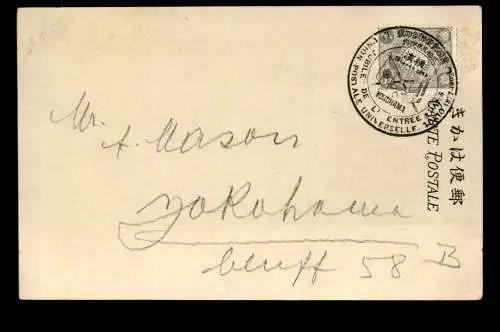 JUBILÉ DE L'ENTRÉE
UNION POSTALE UNIVERSELLE
YOKOHAMA
きかは便郵
CARTE POSTALE
Mr.
A. Mason
Yokohama
bluff 58 B